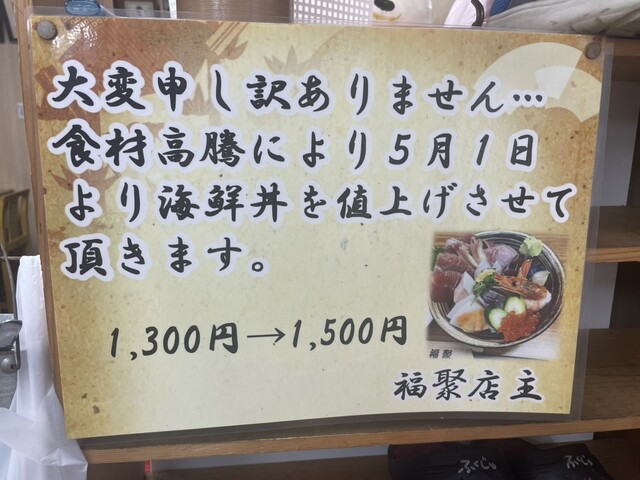 大変申し訳ありません…
食材高騰により5月1日
より海鮮丼を値上げさせて
頂きます。
1,300円→1,500円
福聚
福聚店主
ふくじゅ